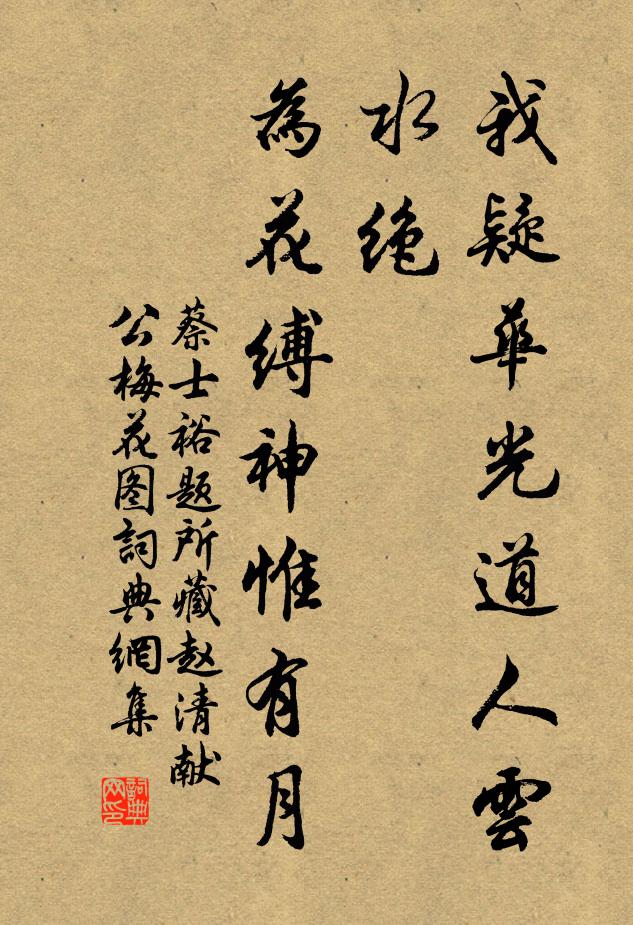 我疑華光道人雲
水绝
為花縛神惟有月
蔡士裕题所藏赵清献
公梅花图詞典網集
詞典
网印